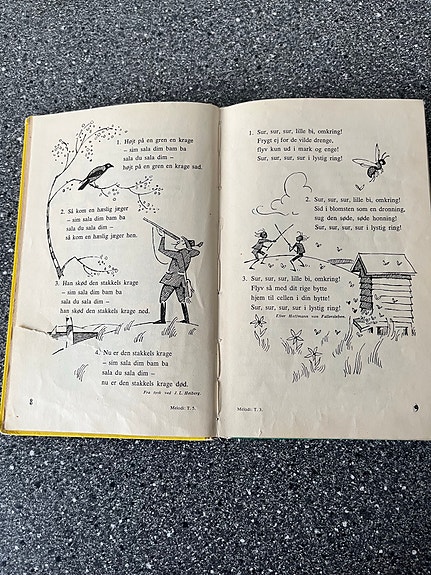 1. Højt på en gren en krage
– sim sala dim bam ba
sala du sala dim –
højt på en gren en krage sad.
2. Så kom en hæslig jæger
– sim sala dim bam ba
sala du sala dim –
så kom en hæslig jæger hen.
3. Han skød den stakkels krage
– sim sala dim bam ba
sala du sala dim –
han skød den stakkels krage ned.
4. Nu er den stakkels krage
– sim sala dim bam ba
sala du sala dim –
nu er den stakkels krage død.
Fra tysk ved J. L. Heiberg.
8
Melodi: T. 5.
1. Sur, sur, sur, lille bi, omkring!
Frygt ej for de vilde drenge,
flyv kun ud i mark og enge!
Sur, sur, sur, sur i lystig ring!
2. Sur, sur, sur, lille bi, omkring!
Sid i blomsten som en dronning,
sug den søde, søde honning!
Sur, sur, sur, sur i lystig ring!
3. Sur, sur, sur, lille bi, omkring!
Flyv så med dit rige bytte
hjem til cellen i din hytte!
Sur, sur, sur, sur i lystig ring!
Efter Hoffmann von Fallersleben.
Melodi: T. 3.
9